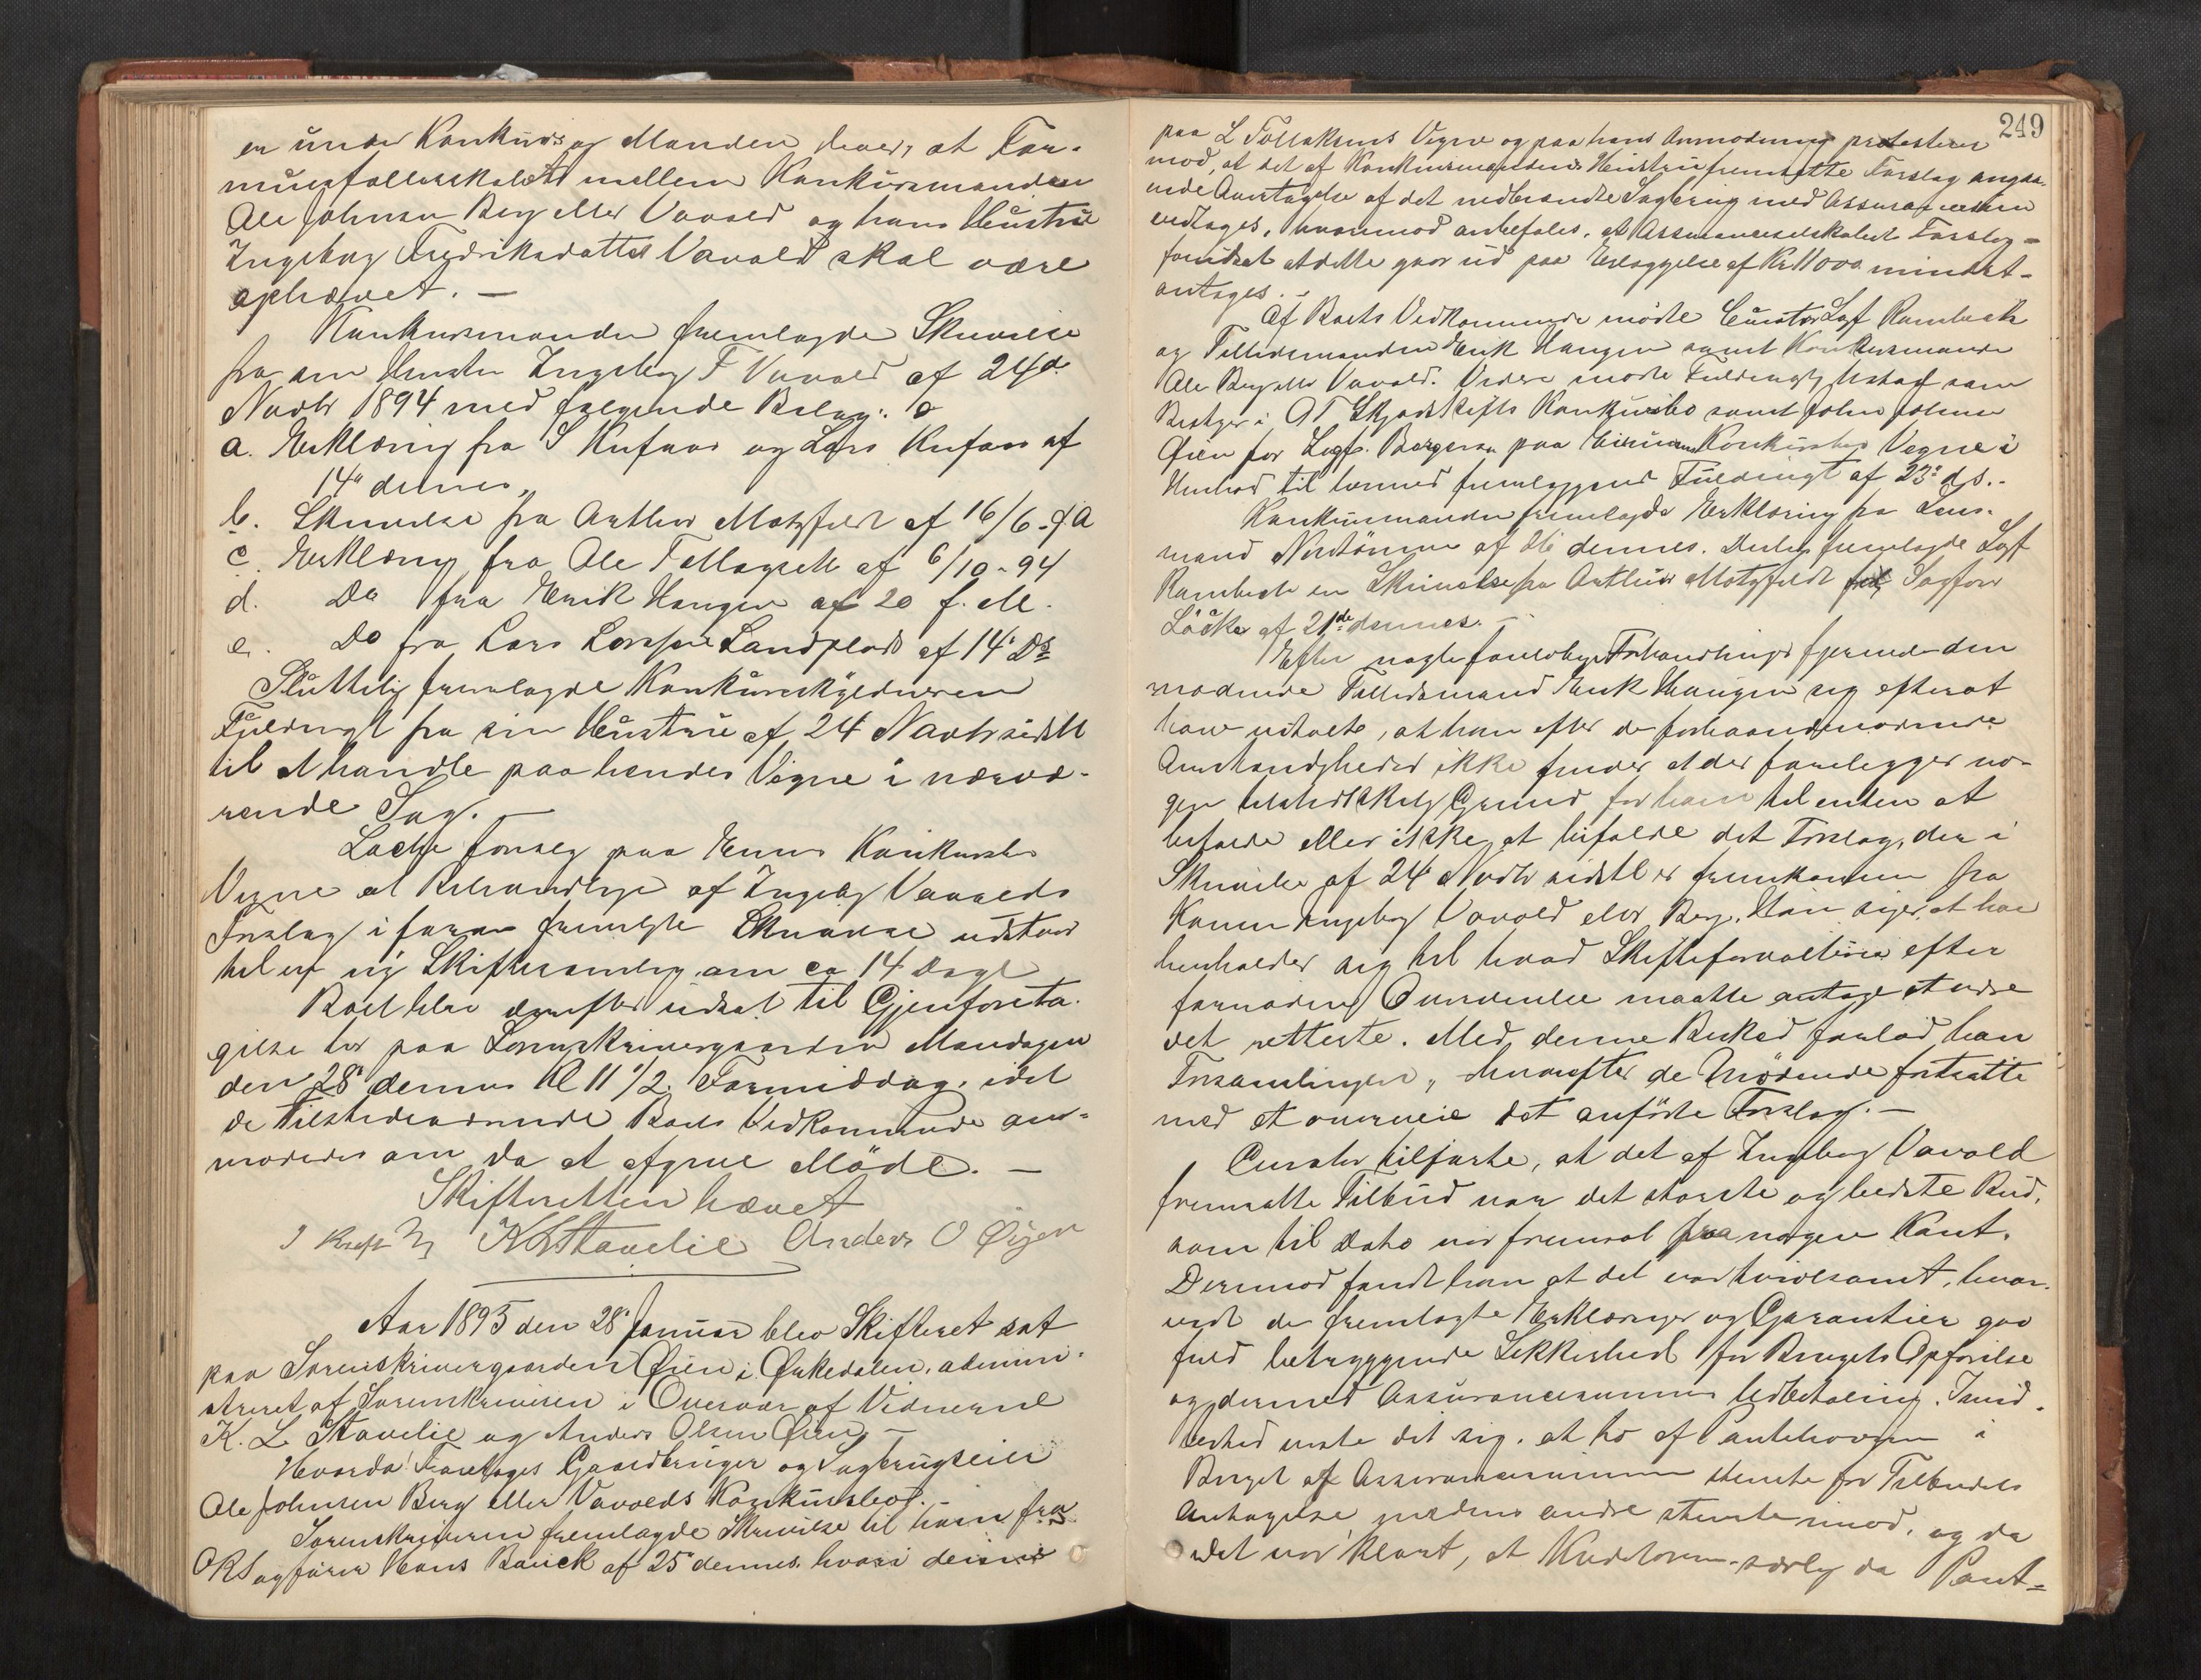 er under Konkurs og Manden læver, at For-
muesfællesskabet mellem Konkursmanden
Ole Johnsen Berg eller Vavold og hans Hustru
Ingeborg Fredriksdatter Vavold skal være
ophævet. —
Konkursmanden fremlagde Skrivelse
fra sin Hustru Ingeborg F Vavold af 24de
Novbr 1894 med følgende Bilag:
a. Erklæring fra S Kufaas og Lars Kufaas af
14de dennes,
b. Skrivelse fra Arthur Motzfeldt af 16/6 f A
c. Erklæring fra Ole Follagsett af 6/10-94
d. Do fra Erik Haugen af 20 f. M.
e. Do fra Lars Larssen Sandplads af 14de Ds
Sluttelig fremlagde Konkursskyldneren
Fuldmagt fra sin Hustru af 24 Novbr sidstl
til at handle paa hendes Vegne i nærvæ-
rende Sag. —
Løcke foreslog paa Konkursbos
Vegne at Behandlingen af Ingeborg Vavolds
Forslag i foran fremlagte Skrivelse udstaar
til en ny Skiftesamling om ca 14 Dage
Boet blev derefter udsat til Gjenforeta-
gelse her paa Sorenskrivergaarden Mandagen
den 28de dennes Kl 11 1/2 Formiddag, idet
de tilstedeværende Boets Vedkommende an-
modedes om da at afgive Møde. —
Skifteretten hævet
K L Stavelie Anders O Øyen
Aar 1895 den 28de Januar blev Skifteret sat
paa Sorenskrivergaarden Øien i Ørkedalen, admini-
streret af Sorenskriveren i Overvær af Vidnerne
K. L. Stavelie og Anders Olsen Øien —
Hvorda: Foretoges Gaardbruger og Sagbrugseier
Ole Johnsen Berg eller Vavolds Konkursbo. —
Sorenskriveren fremlagde Skrivelse til ham fra
ORSagfører Hans Bauck af 25de dennes, hvori denne
249
paa L Follaksens Vegne og paa hans Anmodning protesterer
mod, at det af Konkursmandens Hustru fremsatte Forslag angaa-
ende Antagelse af det nedbrændte Sagbrug med Assurancesum
vedtages, hvorimod anbefales, at Assuranceselskabets Forslag —
forudsat at dette gaar ud paa Erlæggelse af Kr 11000 mindst —
antages. —
Af Boets Vedkommende mødte Curator Sagf Rambech
og Tillidsmanden Erik Haugen samt Konkursmanden
Ole Berg eller Vavold. Videre mødte Fuldmægtig Ustad som
Bestyrer i O T Skjødskifts Konkursbo samt John Johnsen
Øien for Sagf. Borgersen paa Konkursbos Vegne i
Henhold til hermed fremlæggende Fuldmagt af 23de ds. —
Konkursmanden fremlagde Erklæring fra Lens-
mand af dennes. Derhos fremlagde Sagf
Rambech en Skrivelse fra Arthur Motzfeldt til Sagfører
Löcke af 21de dennes. —
Efter nogle foreløbige Forhandlinger fjernede den
mødende Tillidsmand Erik Haugen sig efterat
have udtalt, at han efter de forhaandenværende
Omstændigheder ikke finder at der foreligger no-
gen tilstrækkelig Grund for ham til enten at
bifalde eller ikke at bifalde det Forslag, der i
Skrivelse af 24de Novbr sidstl er fremkommen fra
Konen Ingeborg Vavold eller Berg. Han siger, at han
henholder sig til hvad Skifteforvalteren efter
fornøden Overveielse maatte antage at være
det retteste. Med denne Besked forlod han
Forsamlingen, hvorefter de Mødende fortsatte
med at overveie det anførte Forslag. —
Curator tilførte, at det af Ingeborg Vavold
fremsatte Tilbud var det største og bedste Bud,
som til Dato var fremsat fra nogen Kant.
Derimod fandt han at det var tvivlsomt, hvor-
vidt de fremlagte Erklæringer og Garantier gav
fuld betryggende Sikkerhed for Brugets Opførelse
og dermed Assurancesummens Udbetaling. Imid-
lertid viste det sig, at to af Panthaverne i
Bruget af Assurancesummen stemte for Tilbudets
Antagelse medens andre stemte imod, og da
det var klart, at Kreditorerne, særlig da Pant-